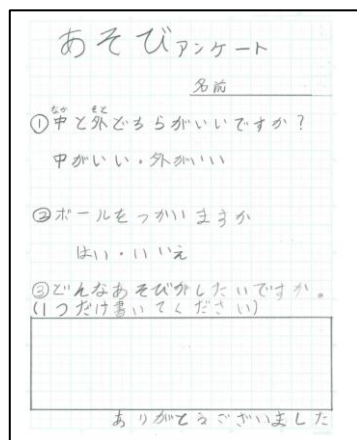 あそびアンケート
名前
①中と外どちらがいいですか?
中がいい・外がいい
②ボールをつかいますか
はい・いいえ
③どんなあそびがしたいですか。
(1つだけ書いてください)
ありがとうございました